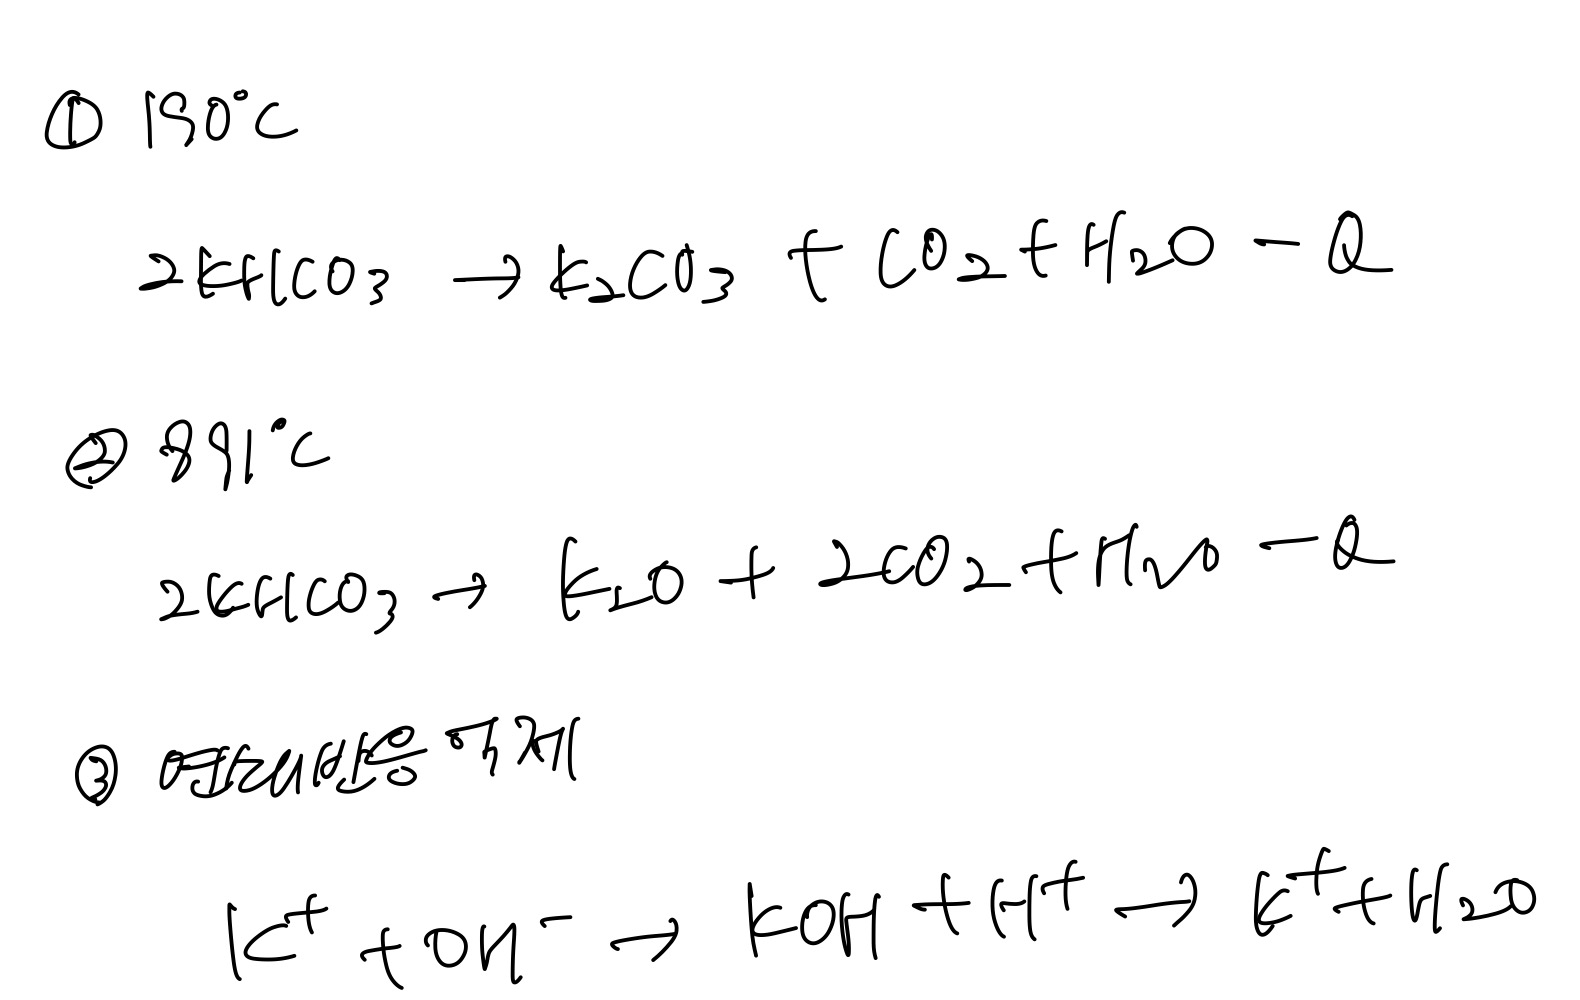 ① 190°C
2KHCO₃ → K₂CO₃ + CO₂ + H₂O - Q
② 891°C
2KHCO₃ → K₂O + 2CO₂ + H₂O - Q
③ 연쇄반응억제
K⁺ + OH⁻ → KOH + H⁺ → K⁺ + H₂O